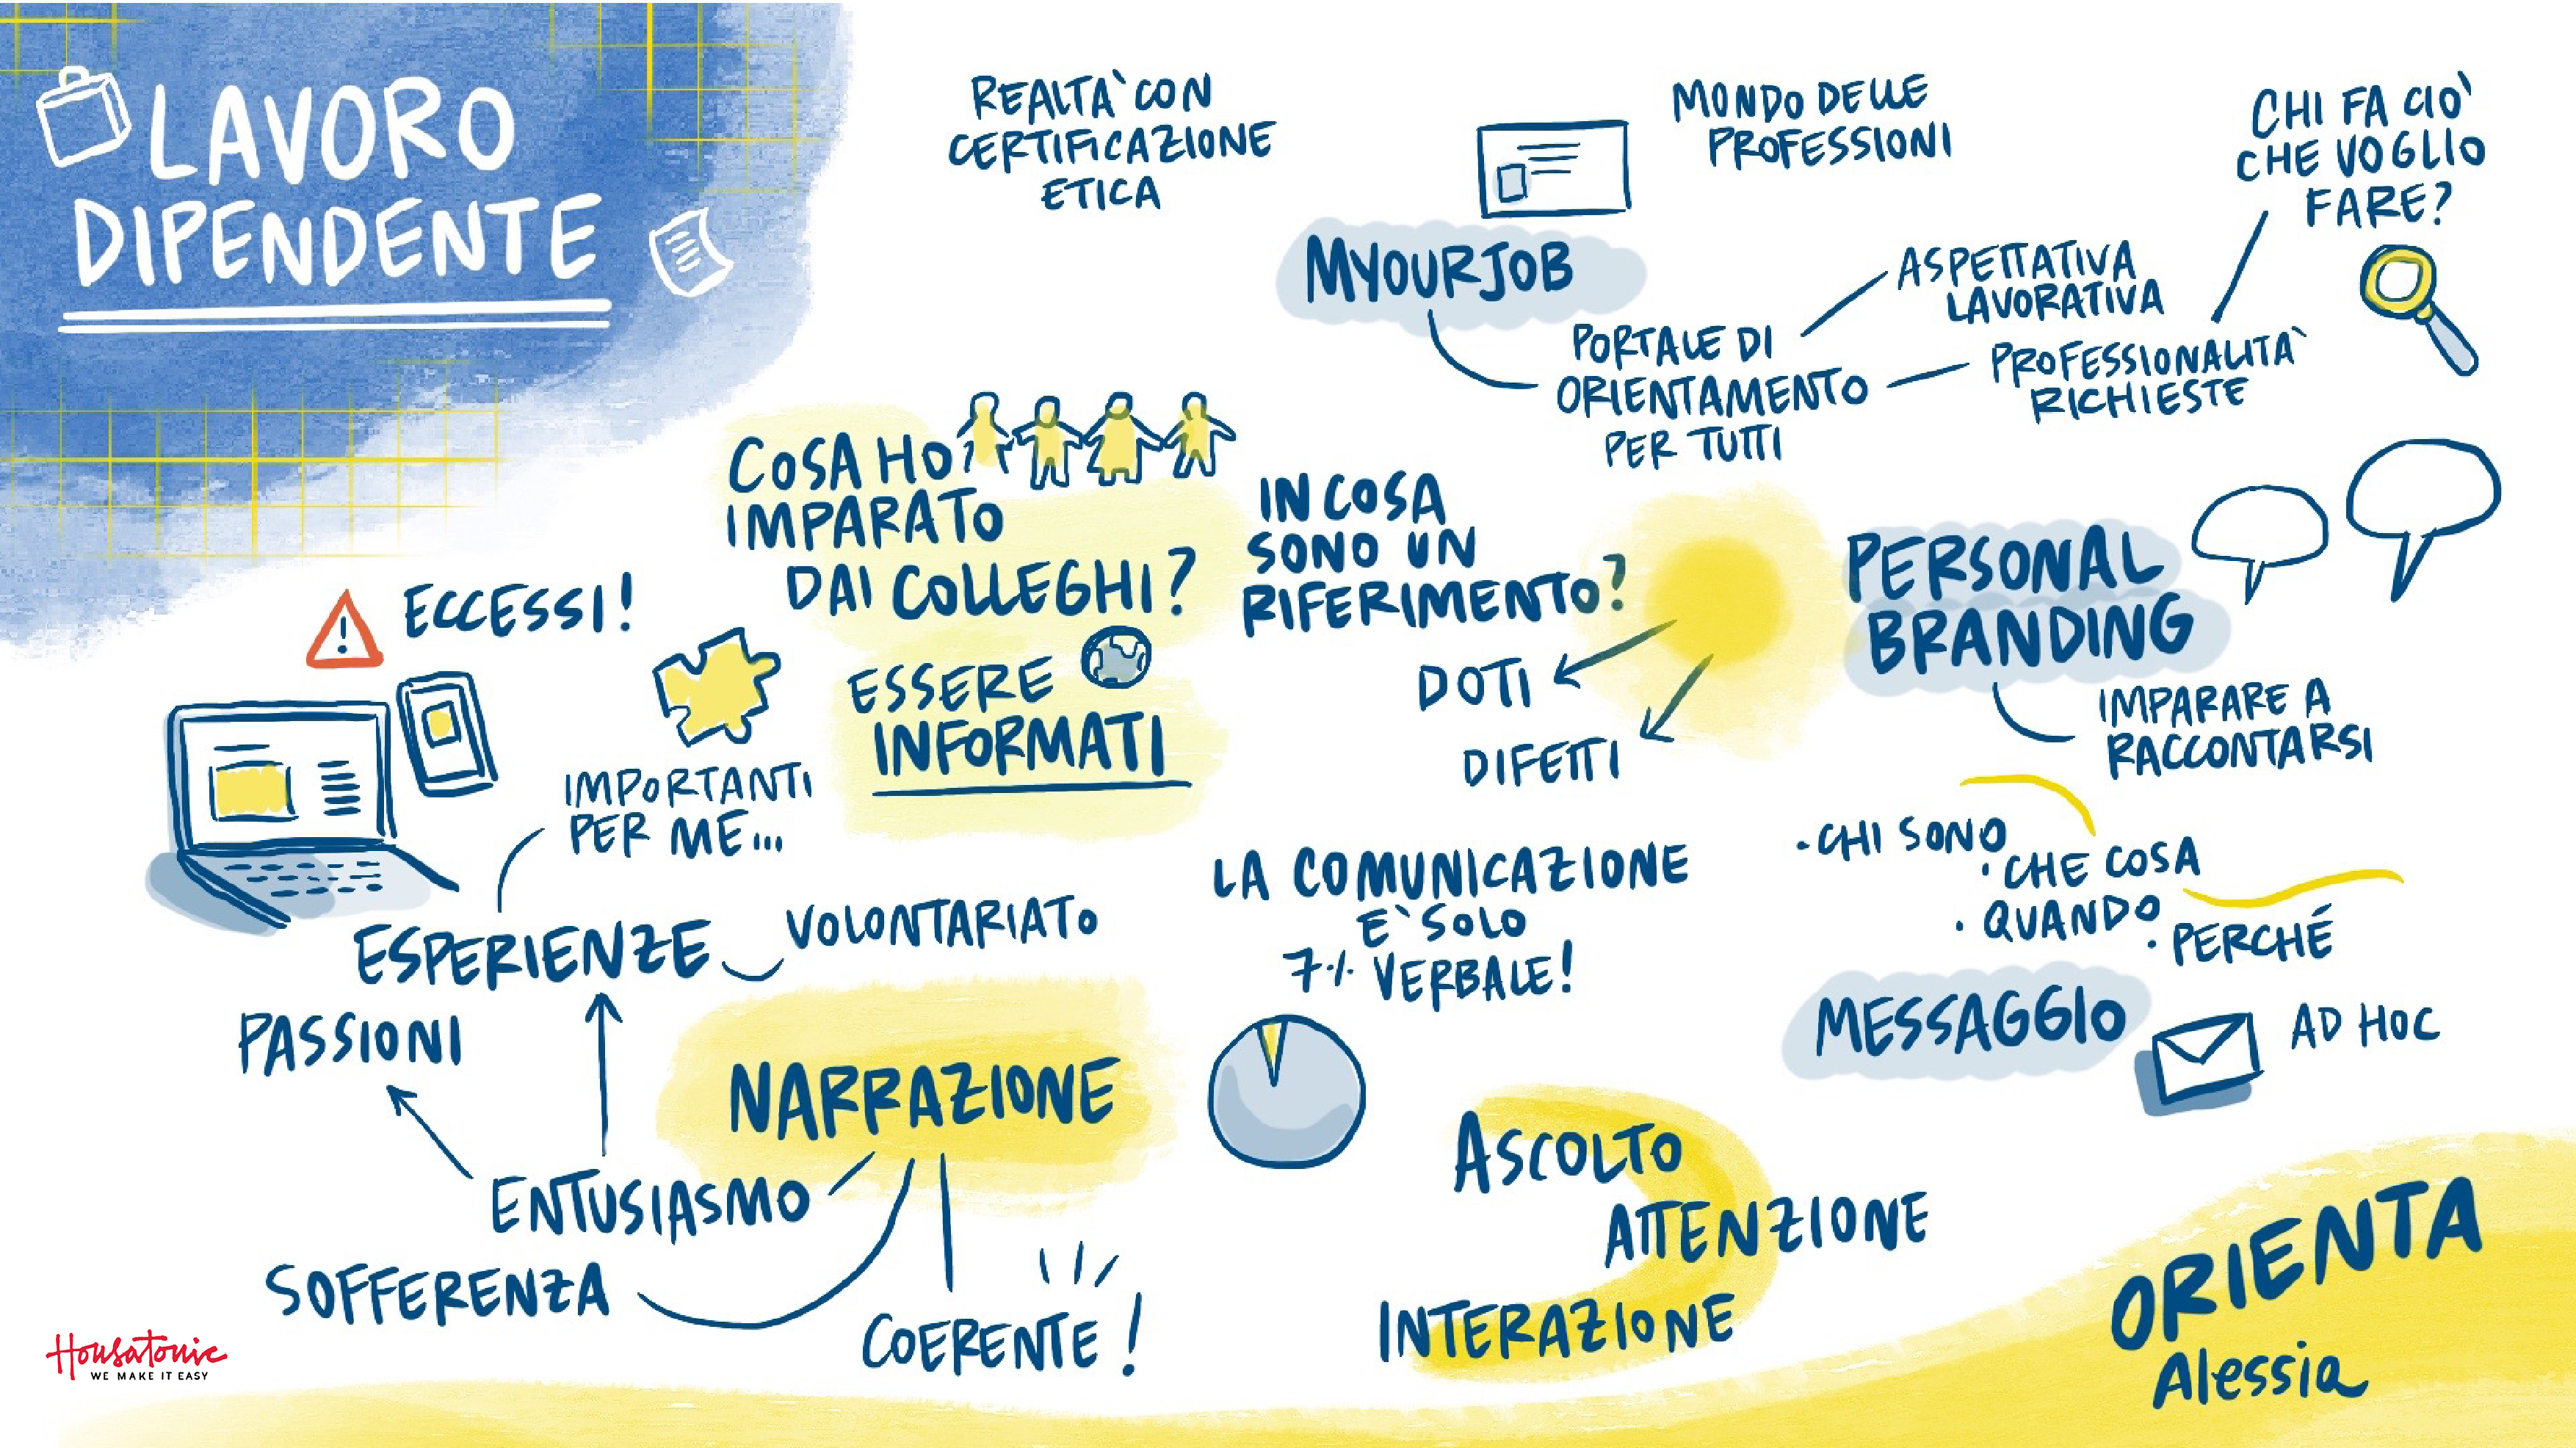 LAVORO
DIPENDENTE
REALTA' CON
CERTIFICAZIONE
ETICA
MONDO DELLE
PROFESSIONI
CHI FA CIO'
CHE VOGLIO
FARE?
MYOURJOB
PORTALE DI
ORIENTAMENTO
PER TUTTI
ASPETTATIVA
LAVORATIVA
PROFESSIONALITA'
RICHIESTE
COSA HO
IMPARATO
DAI COLLEGHI?
ESSERE
INFORMATI
IN COSA
SONO UN
RIFERIMENTO?
DOTI
DIFETTI
PERSONAL
BRANDING
IMPARARE A
RACCONTARSI
• CHI SONO
• CHE COSA
• QUANDO
• PERCHÉ
MESSAGGIO
AD HOC
ECCESSI!
IMPORTANTI
PER ME...
ESPERIENZE
VOLONTARIATO
PASSIONI
NARRAZIONE
ENTUSIASMO
SOFFERENZA
COERENTE!
LA COMUNICAZIONE
E' SOLO
7% VERBALE!
ASCOLTO
ATTENZIONE
INTERAZIONE
ORIENTA
Alessia
Housatonic
WE MAKE IT EASY